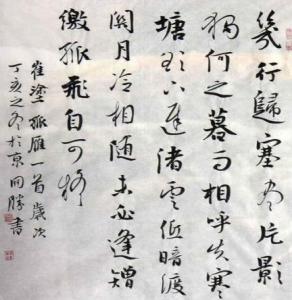 幾行歸塞盡片影
獨何之暮雨相呼失寒
塘欲下遲渚雲低暗渡
關月冷相隨未必逢矰
繳孤飛自可疑
崔塗孤雁一首歲次
丁亥之冬於京同勝書